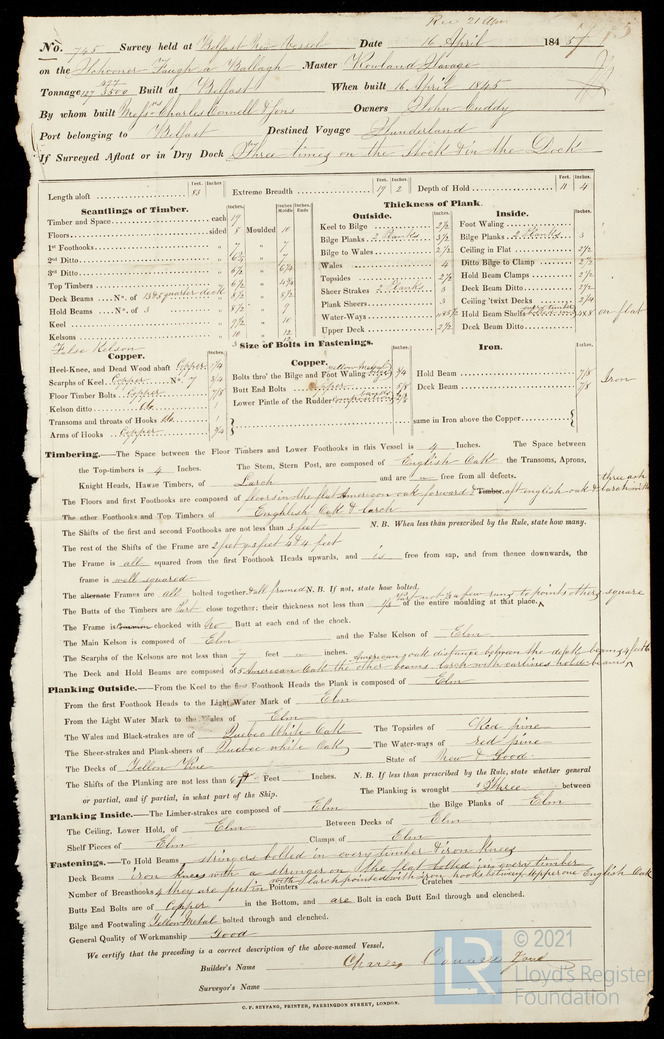 Rec 21 Apr
No. 745 Survey held at Belfast New Vessel Date 16 April 1845
on the Schooner Faugh a Ballagh Master Rowland Savage
Tonnage 127 Built at Belfast When built 16 April 1845
By whom built Messrs Charles Connell & Sons Owners John Cuddy
Port belonging to Belfast Destined Voyage Sunderland
If Surveyed Afloat or in Dry Dock Three times on the Stock & in the Dock
Feet. Inches. Feet. Inches. Feet. Inches.
Length aloft 83 Extreme Breadth 19 2 Depth of Hold 11 4
Scantlings of Timber.
Timber and Space each 17
Floors sided 8 Moulded 10
1st Foothooks 7 " 7
2nd Ditto 6½ " 7
3rd Ditto
Top Timbers
Deck Beams No. of
Hold Beams No. of 3
Keel
Kelsons
False Kelson
Thickness of Plank.
Outside.
Keel to Bilge 2½
Bilge Planks 2 Planks 3½
Bilge to Wales 2½
Wales 4
Topsides 2½
Sheer Strakes 2 Planks 3
Plank Sheers 3
Water-Ways
Upper Deck 2½
Inside.
Foot Waling
Bilge Planks 2 Planks 3
Ceiling in Flat 2½
Ditto Bilge to Clamp 2½
Hold Beam Clamps 2½
Deck Beam Ditto 2½
Ceiling 'twixt Decks 2¼
Hold Beam Shelfs on flat
Deck Beam Ditto
Size of Bolts in Fastenings.
Copper.
Heel-Knee, and Dead Wood abaft Copper ¾
Scarphs of Keel Copper No. 7 ¾
Floor Timber Bolts Copper 7/8
Kelson ditto do 1
Transoms and throats of Hooks do 1
Arms of Hooks Copper ¾
Copper.
Bolts thro' the Bilge and Foot Waling Yellow Metal ¾
Butt End Bolts Copper 5/8
Lower Pintle of the Rudder Composition
Iron.
Hold Beam 7/8
Deck Beam 7/8 Iron
same in Iron above the Copper
Timbering.—The Space between the Floor Timbers and Lower Foothooks in this Vessel is 4 Inches. The Space between
the Top-timbers is 4 Inches. The Stem, Stern Post, are composed of English Oak the Transoms, Aprons,
Knight Heads, Hawse Timbers, of Larch and are free from all defects.
The Floors and first Foothooks are composed of floors in the flat American oak forward & Timber. aft english oak & three ash larch with
The other Foothooks and Top Timbers of English Oak & Larch
The Shifts of the first and second Foothooks are not less than 3 feet N. B. When less than prescribed by the Rule, state how many.
The rest of the Shifts of the Frame are 2 feet 4 4 feet
The Frame is all squared from the first Foothook Heads upwards, and is free from sap, and from thence downwards, the
frame is well squared
The alternate Frames are all bolted together & all framed N. B. If not, state how bolted.
The Butts of the Timbers are Part close together; their thickness not less than 1/3 of the entire moulding at that place, not & a few run to points others square
The Frame is Common chocked with No Butt at each end of the chock.
The Main Kelson is composed of Elm and the False Kelson of Elm
The Scarphs of the Kelsons are not less than 7 feet inches.
The Deck and Hold Beams are composed of 5 American Oak the other beams Larch with carlines American oak distance between the deck beams 4 feet 6 hold beams
Planking Outside.—From the Keel to the first Foothook Heads the Plank is composed of Elm
From the first Foothook Heads to the Light Water Mark of Elm
From the Light Water Mark to the Wales of Elm
The Wales and Black-strakes are of Quebec White Oak The Topsides of Red pine
The Sheer-strakes and Plank-sheers of Quebec white Oak The Water-ways of red pine
The Decks of Yellow Pine State of New & Good
The Shifts of the Planking are not less than 6 Feet Inches. N. B. If less than prescribed by the Rule, state whether general
or partial, and if partial, in what part of the Ship. The Planking is wrought Three between
Planking Inside.—The Limber-strakes are composed of Elm the Bilge Planks of Elm
The Ceiling, Lower Hold, of Elm Between Decks of Elm
Shelf Pieces of Elm Clamps of Elm
Fastenings.—To Hold Beams stringers bolted in every timber & iron knees
Deck Beams iron knees with a stringer on the flat bolted in every timber
Number of Breasthooks 4 they are put in with Pointers larch pointed with iron hooks between Crutches upper one English Oak
Butts End Bolts are of Copper in the Bottom, and are Bolt in each Butt End through and clenched.
Bilge and Footwaling Yellow Metal bolted through and clenched.
General Quality of Workmanship Good
We certify that the preceding is a correct description of the above-named Vessel,
Builder's Name Charles Connell & Sons
Surveyor's Name
C. F. SEYFANG, PRINTER, FARRINGDON STREET, LONDON.
LR © 2021
Lloyd's Register
Foundation